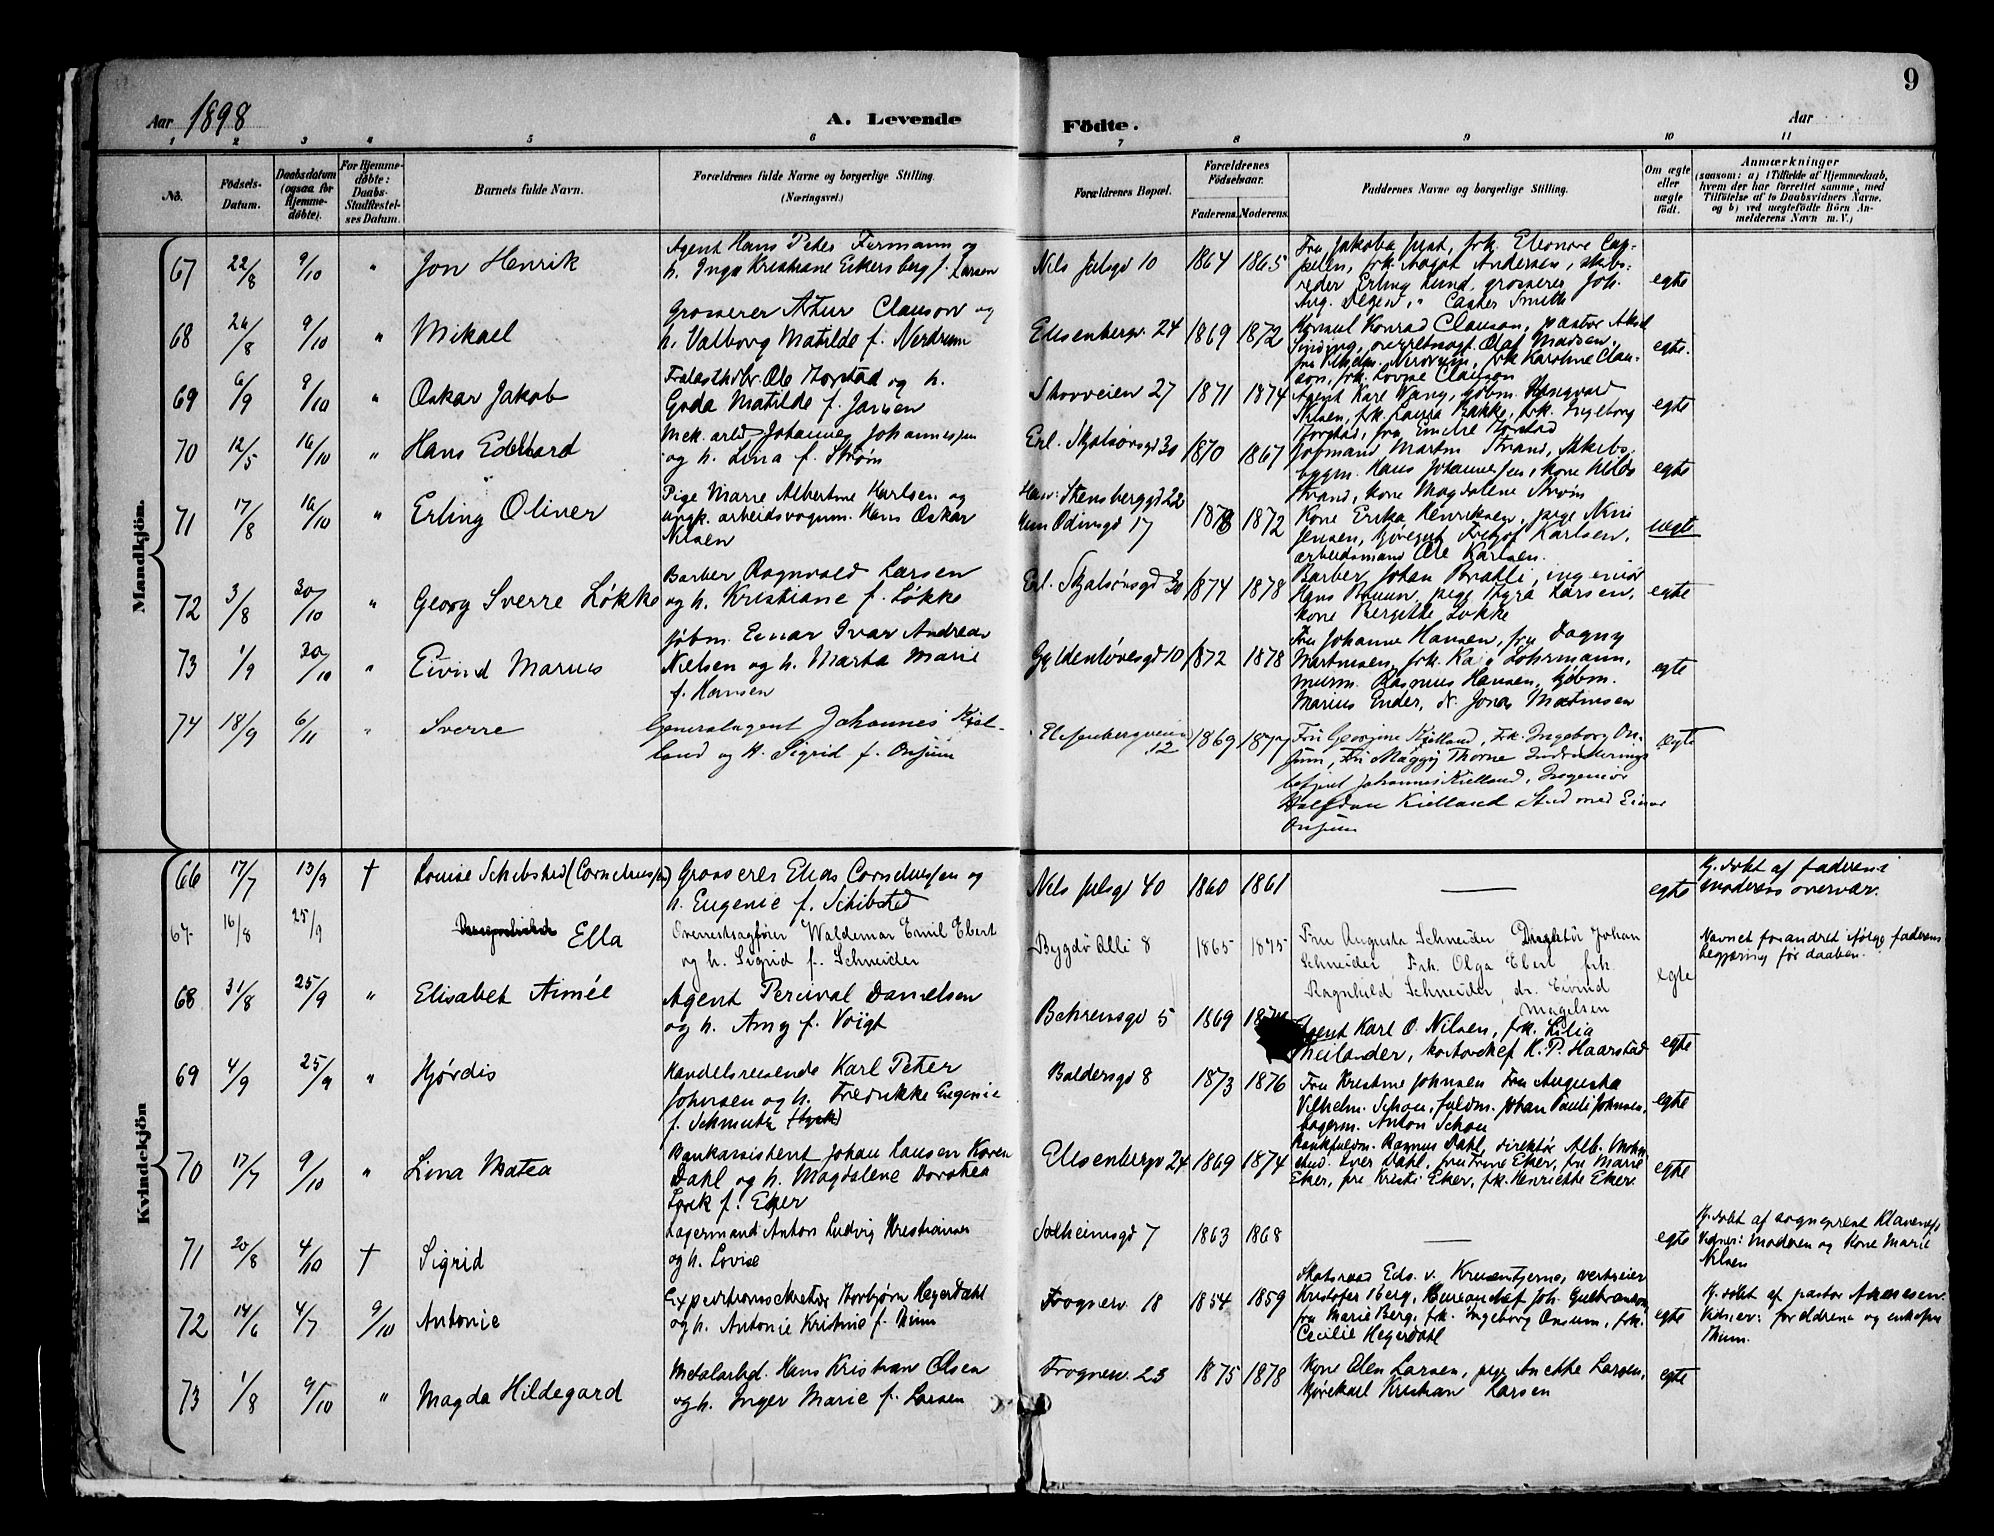 9
Aar 1898
A. Levende
Födte.
Aar
1 2 3 4 5 6 7 8 9 10 11
No.
Födsels-Datum.
Daabsdatum (ogsaa for Hjemme-døbte).
For Hjemme-døbte: Daabs-Stadfæstel-ses Datum.
Barnets fulde Navn.
Forældrenes fulde Navne og borgerlige Stilling. (Næringsvei.)
Forældrenes Bopæl.
Forældrenes Fødselsaar.
Faderens. Moderens.
Faddernes Navne og borgerlige Stilling.
Om ægte eller uægte født.
Anmærkninger
(saasom: a) i Tilfælde af Hjemmedaab, hvem der har forrettet samme, med Tilføielse af to Daabsvidners Navne. og b) ved uægtefödte Börn An-melderens Navn m. V.)
Mandkjön.
67 22/8 9/10 " Jon Henrik
Agent Hans Peter Fermann og
h. Inga Kristiane Eckersberg f. Larsen
Nils Juelsgd 10 1864 1865
Fru Jakoba Just, frk. Eleonore Cap-
pelen, frk. Aagot Andersen, skibs-
reder Erling Lund, grosserer Joh.
Aug. Degen, " Casper Smith
egte
68 26/8 9/10 " Mikael
Grosserer Artur Clauson og
h. Valborg Matilde f. Nerdrum
Elisenbergv 24 1869 1872
Konsul Konrad Clauson, pastor Aksel
Sinding, overretssagf. Olaf Madsen,
fru Vilhelm. Nerdrum, frk Karoline Clau-
son, frk. Lovise Clauson
egte.
69 6/9 9/10 " Oskar Jakob
Ole Torstad og h.
Goda Matilde f. Jansen
Skovveien 27 1871 1874
Agent Karl Wang, kjøbm.
Nilsen, frk. Laura Bakke, frk. Ingeborg
Torstad, fru Emilie Torstad
egte
70 12/5 16/10 " Hans Edvard
Mek. arb. Johannes Johannesen
og h. Lina f. Strøm
Erl. Skjalsønsgd 30 1870 1867
Martin Strand, skibs-
byggm. Hans Johannesen, kone Hilda
Strand, kone Magdalene Strøm
egte
71 17/8 16/10 " Erling Oliver
Pige Marie Albertine Karlsen og
ungk. arbeidsvognm. Hans Oskar
Nilsen
Han: Stensberggd 22
Hun Odinsgd 17 1878 1872
Kone Erika Henriksen, pige Nini
Jensen, kjøregut Fritjof Karlsen,
arbeidsmand Ole Karlsen.
uegte
72 3/8 30/10 " Georg Sverre Løkke
Barber Ragnvald Larsen
og h. Kristiane f. Løkke
Erl. Skjalsønsgd 30 1874 1878
Barber Johan Bratli, ingeniør
Hans Bruun, pige Thyra Larsen,
kone Bergitte Løkke
egte
73 1/9 30/10 " Eivind Marius
Kjøbm. Einar Ivar Andreas
Nielsen og h. Marta Marie
f. Hansen
Gyldenløvesgd 10 1872 1878
Fru Johanne Hansen, fru Dagny
Martinsen, frk. Kaja Lohrmann,
murm. Rasmus Hansen, kjøbm.
Marius Ender, d. Jonas Martinsen
egte
74 18/9 6/11 " Sverre
Generalagent Johannes Kjel-
land og H. Sigrid f. Onsum
Elisenbergveien
12 1869 1877
Fru Georgine Kjelland, Frk. Ingeborg On-
sum, Fru Maggy Thorne
Johannes Kielland, Ingeniør
Halfdan Kielland Stud med Einar
Onsum
ægte
Kvindekjön
66 17/7 13/9 † Louise Schibsted (Corneliussen)
Grosserer Elias Corneliussen og
h. Eugenie f. Schibsted
Nils Juelsgd 40 1860 1861 —
egte
Hj. døbt af faderen i
moderens overvær.
67. 16/8 25/9 Ella
Overretssagfører Waldemar Emil Ebert
og h. Sigrid f. Schneider
Bygdø Alle 8 1865 1875
Fru Augusta Schneider Direktør Johan
Schneider Frk. Olga Ebert frk.
Ragnhild Schneider, dr. Eivind
Magelsen
egte
Navnet forandret ifølge faderens
begjæring før daaben.
68 31/8 25/9 " Elisabet Aimée
Agent Percival Danielsen
og h. Amy f. Voigt
Behrensgd 5 1869
Agent Karl O. Nilsen, frk. Lilia
Theilander, kontorchef K. P. Haarstad
egte
69 4/9 25/9 " Hjørdis
Handelsreisende Karl Peter
Johnsen og h. Fredrikke Eugenie
f. Schmutz (tysk)
Baldersgd 8 1873 1876
Fru Kristine Johnsen Fru Augusta
Vilhelm. Schou, fuldm. Johan Pauli Johnsen,
lagerm. Anton Schou
egte
70 17/7 9/10 " Lina Matea
Bankassistent Johan Lausen Koren
Dahl og h. Magdalene Dorotea
Lovik f. Eger
Elisenbergv 24 1869 1874
Bankfuldm. Ragnus Dahl, direktør Alb. Mohn
stud. Iver Dahl, fru Trine Eker, fru Marie
Eker, fru Kristi Eker, frk. Henriette Eker.
egte
71 20/8 4/10 † Sigrid
Lagermand Anton Ludvig Kristiansen
og h. Lovise
Solheimsgd 7 1863 1868 —
egte
Hj. døbt af sogneprest Klaveness
Vidner: Moderen og Kone Marie
Nilsen
72 14/6 4/7 9/10 Antonie
Expeditionssekretær Torbjørn Hegerdahl
og h. Antonie Kristine f. Thum
Frognerv. 18 1854 1859
Statsraad Eds. v. Krusentjerne, verkseier
Kristofer Berg, bureauchef Joh. Gulbranson
fru Marie Berg, frk. Ingeborg Onsum, frk.
Cecilie Hegerdahl
egte
Hj. døbt af pastor Andresen.
Vidner: foreldrene og enkefru
Thum.
73 1/8 9/10 " Magda Hildegard
Metalarbd. Hans Kristian Olsen
og h. Inger Marie f. Larsen
Frognerv. 23 1875 1878
Kone Elen Larsen, pige Anette Larsen,
kjørekarl Kristian Larsen
egte